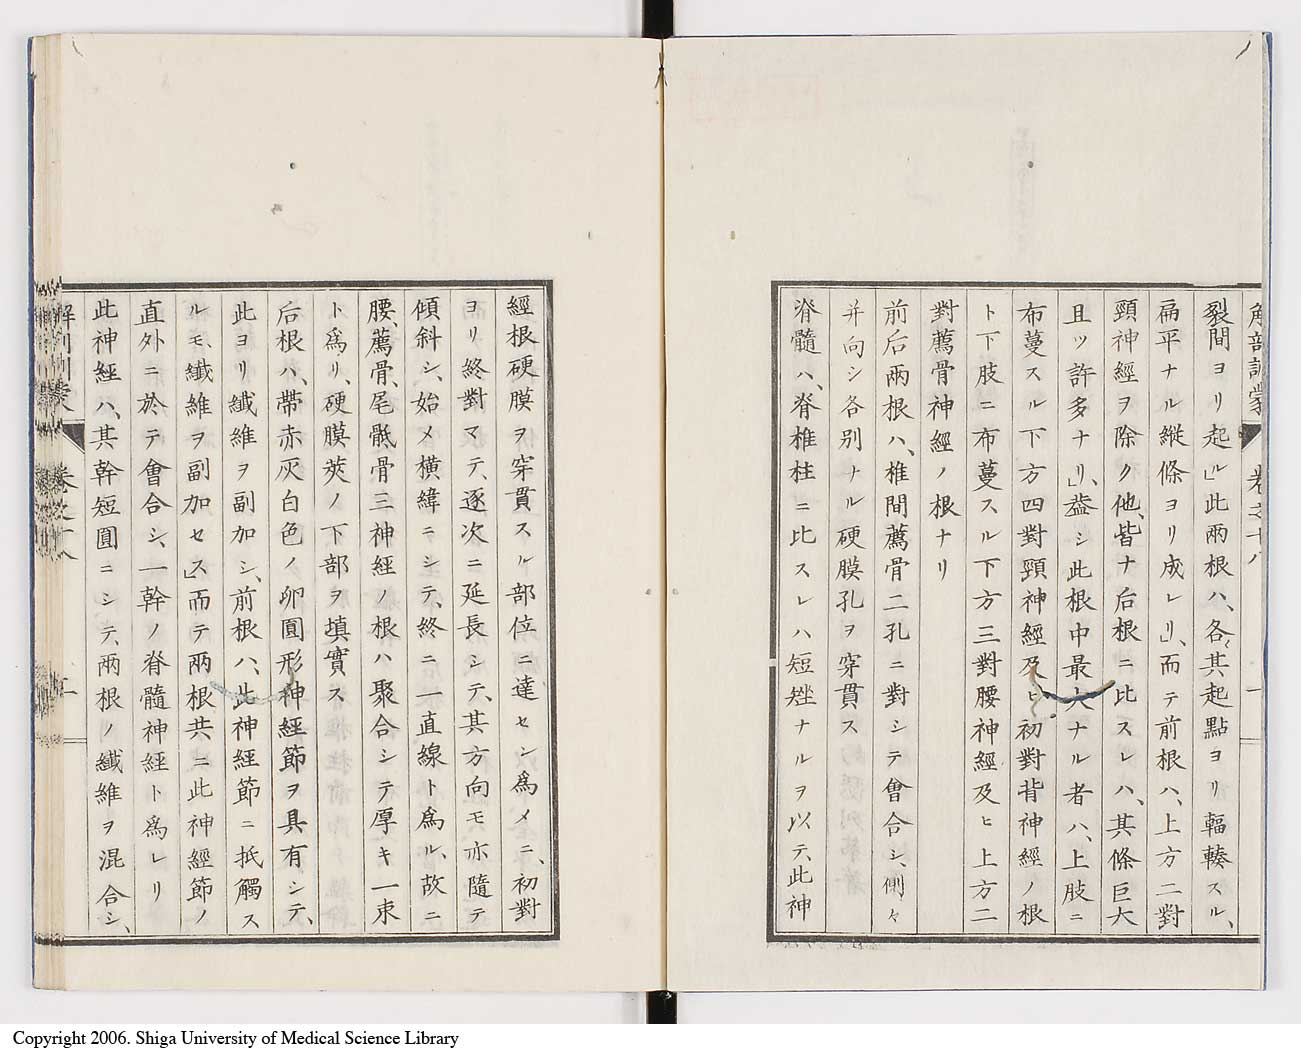 解剖訓蒙 卷之十八
裂間ヨリ起ル」此兩根ハ、各其起點ヨリ輻輳スル、
扁平ナル縱條ヨリ成レリ」、而テ前根ハ、上方二對
頸神經ヲ除ク他、皆ナ后根ニ比スレハ、其條巨大
且ツ許多ナリ」、蓋シ此根中最大ナル者ハ、上肢ニ
布蔓スル下方四對頸神經及ヒ初對背神經ノ根
ト下肢ニ布蔓スル下方三對腰神經及ヒ上方二
對薦骨神經ノ根ナリ
前后兩根ハ、椎間薦骨二孔ニ對シテ會合シ、側々
并向シ各別ナル硬膜孔ヲ穿貫ス
脊髓ハ、脊椎柱ニ比スレハ短矬ナルヲ以テ、此神
經根硬膜ヲ穿貫スル部位ニ達セシ爲メニ、初對
ヨリ終對マテ、逐次ニ延長シテ、其方向モ亦隨テ
傾斜シ、始メ橫緯ニシテ、終ニ一直線ト爲ル、故ニ
腰、薦骨、尾骶骨三神經ノ根ハ聚合シテ厚キ一束
ト爲リ、硬膜莢ノ下部ヲ塡實ス
后根ハ、帶赤灰白色ノ卵圓形神經節ヲ具有シテ、
此ヨリ纎維ヲ副加シ、前根ハ、此神經節ニ抵觸ス
ルモ、纎維ヲ副加セス」而テ兩根共ニ此神經節ノ
直外ニ於テ會合シ、一幹ノ脊髓神經ト爲レリ
此神經ハ、其幹短圓ニシテ、兩根ノ纎維ヲ混合シ、
卷之十八
Copyright 2006. Shiga University of Medical Science Library